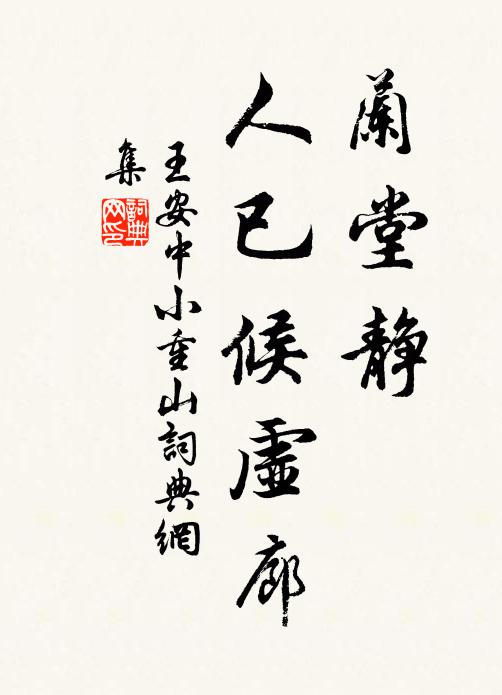 蘭堂靜
人已候虛廊
王安中小重山詞典網
集
詞典
网印